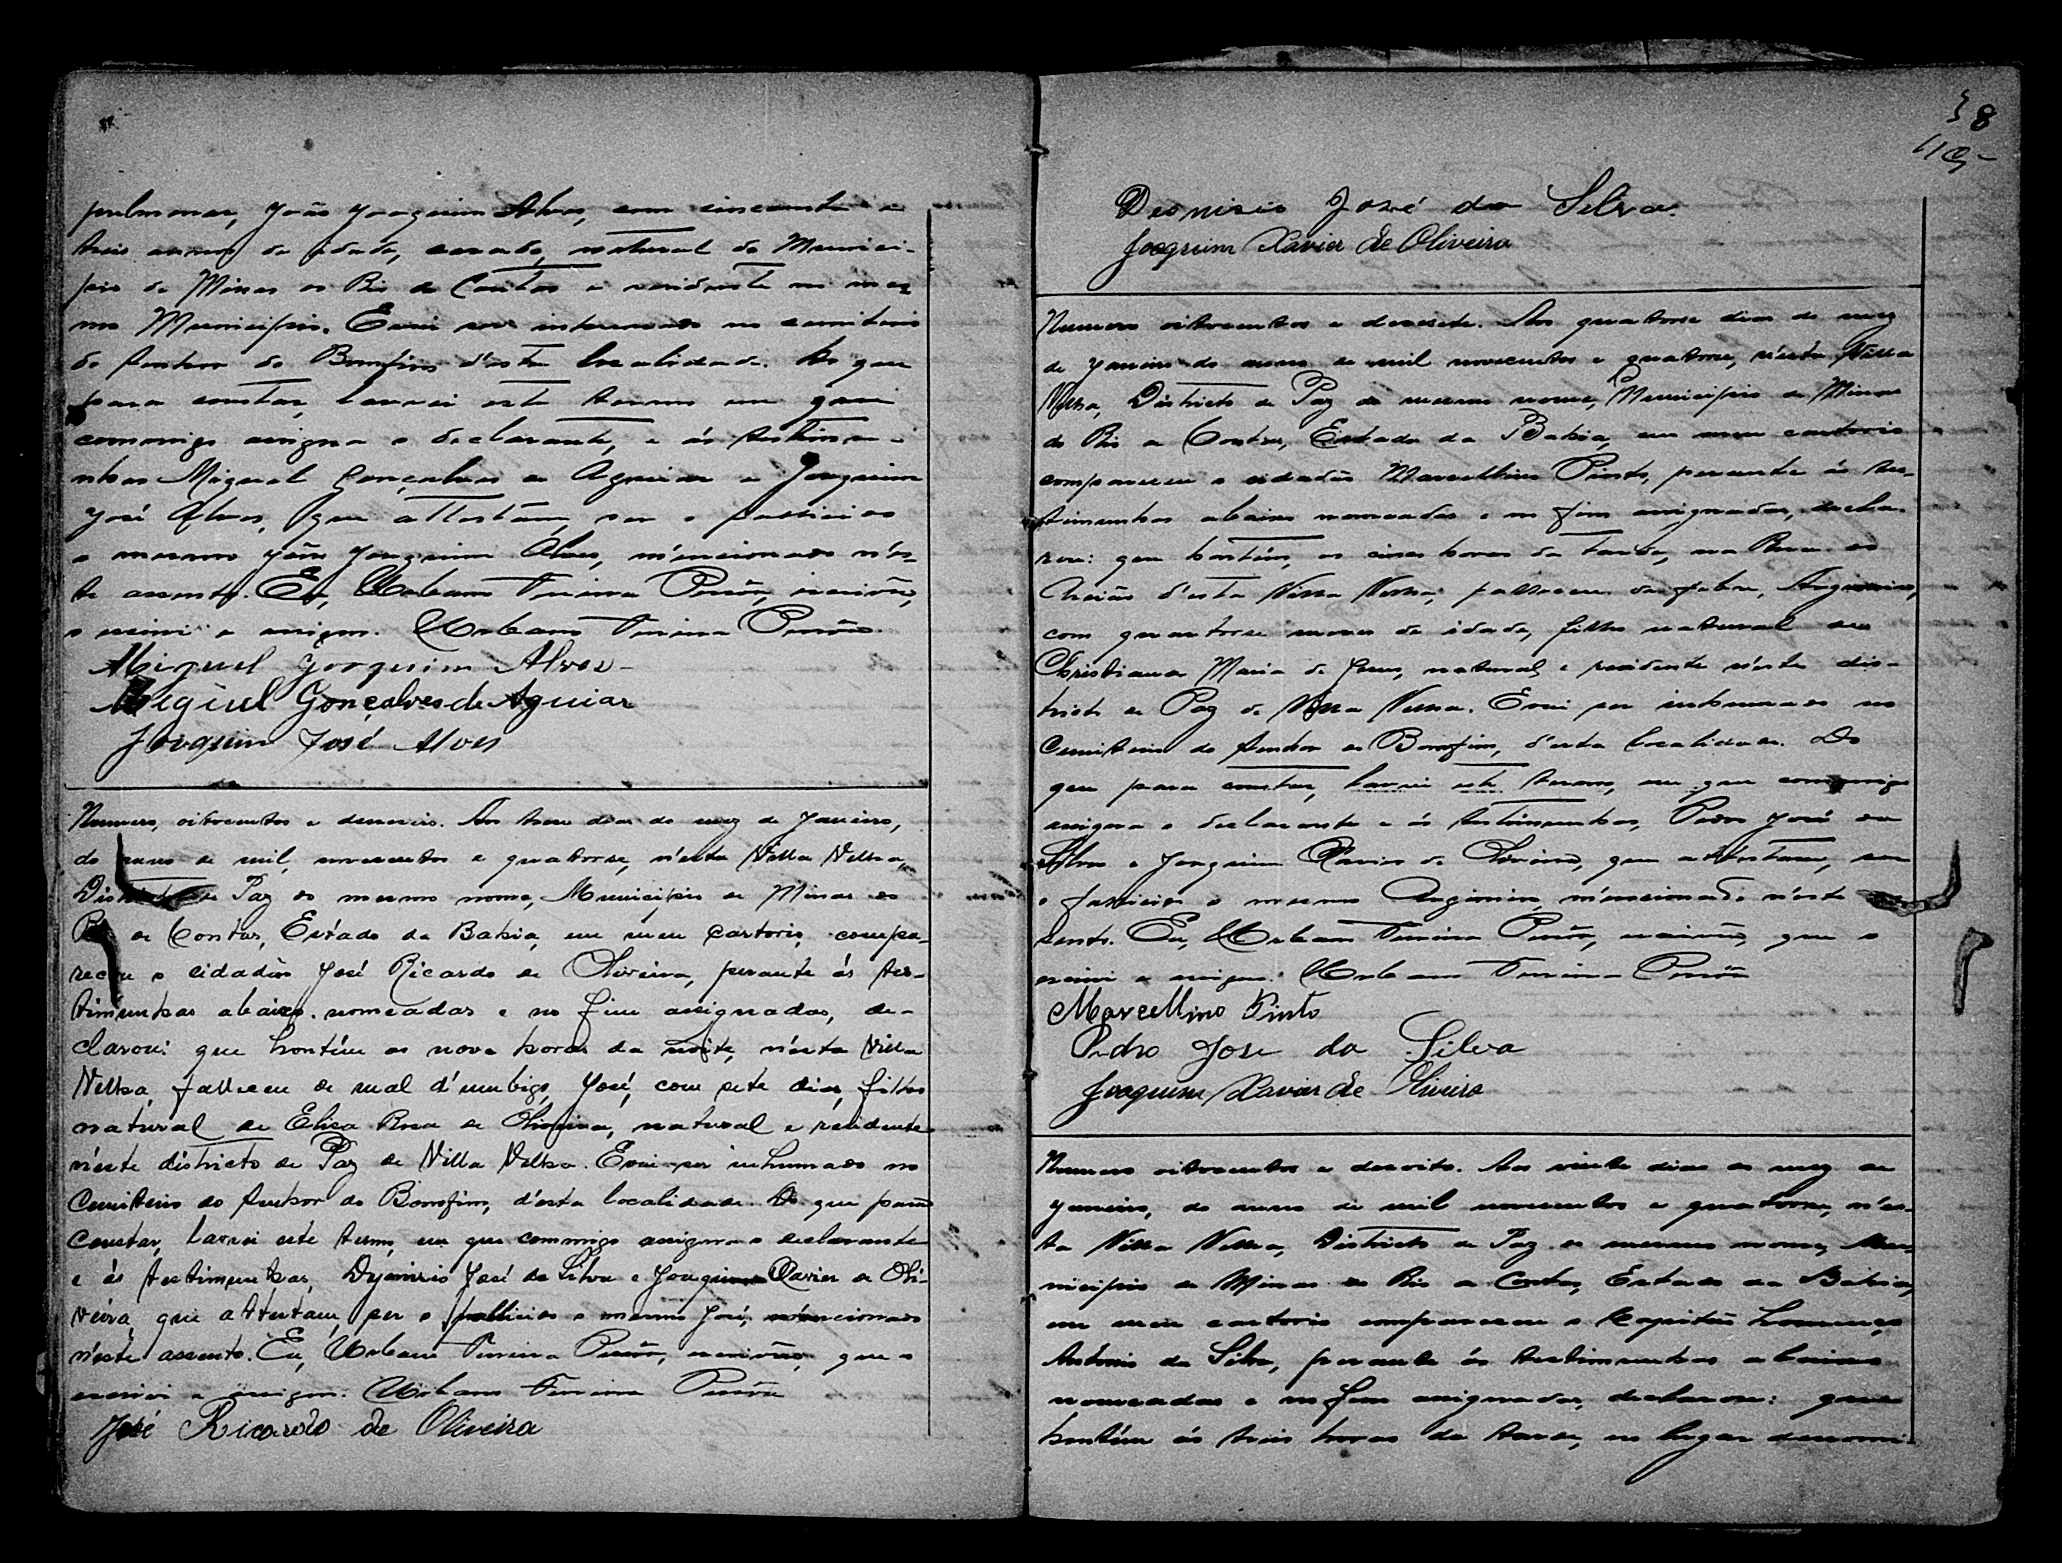 pulmonar, João Joaquim Alves, com cincoenta e
tres annos de idade, casado, natural do Munici-
pio de Minas do Rio de Contas e residente no mes
mo Municipio. E vai ser inhumado no cemiterio
do Senhor do Bomfim d'esta localidade. Do que
para constar, lavrei este termo em que
commigo assigna o declarante, e ás testimu-
nhas Miguel Gonçalves de Aguiar e Joaquim
José Alves, que attestam ser o fallecido
o mesmo João Joaquim Alves, mencionado n'es-
te assento. Eu, Urbano Pereira escrivão,
o escrevi e assigno. Urbano
Miguel Joaquim Alves
Miguel Gonçalves de Aguiar
Joaquim José Alves
Numero, oitocentos e deseseis. Aos treze dias do mez de Janeiro,
do anno de mil, novecentos e quatorse, n'esta Villa Velha,
Districto de Paz do mesmo nome, Municipio de Minas do
Rio de Contas, Estado da Bahia, em meu cartorio, compa-
receu o cidadão José Ricardo de Oliveira, perante ás tes-
timunhas abaixo nomeadas e no fim assignadas, de-
clarou: que hontém as nove horas da noite, n'esta Villa
Velha, falleceu de mal d'umbigo, José, com sete dias, filho
natural de Elisa Rosa de Oliveira, natural e residente
n'este districto de Paz de Villa Velha. E vai ser inhumado no
Cemiterio do Senhor do Bomfim, d'esta localidade. Do que para
Constar, lavrei este termo, em que commigo assigna o declarante
e ás testimunhas, José da Silva e Joaquim Xavier de Oli-
veira, que attestam, ser o fallecido o mesmo José, mencionado
n'este assento. Eu, Urbano escrivão, que o
escrevi e assigno. Urbano
José Ricardo de Oliveira
38
Deonisio José da Silva.
Joaquim Xavier de Oliveira
Numero oitocentos e desesete. Aos quatorse dias do mez
de Janeiro do anno de mil novecentos e quatorse, n'esta Villa
Velha, Districto de Paz do mesmo nome, Municipio de Minas
do Rio de Contas, Estado da Bahia, em meu cartorio
compareceu o cidadão Marcellino Pinto, perante ás tes-
timunhas abaixo nomeadas e no fim assignadas, decla-
rou: que hontém, as cinco horas da tarde, na Rua do
d'esta Villa Velha, falleceu de febre,
com quatorse mezes de idade, filho natural de
Christiana Maria de Jesus, natural e residente n'este dis-
tricto de Paz de Villa Velha. E vai ser inhumado no
Cemiterio do Senhor do Bomfim, d'esta localidade. Do
que para constar, lavrei este termo, em que commigo
assigna o declarante e ás testimunhas, Pedro José da
Silva e Joaquim Xavier de Oliveira, que attestam, ser
o fallecido o mesmo mencionado n'este
sento. Eu, Urbano escrivão, que o
escrevi e assigno. Urbano
Marcellino Pinto
Pedro José da Silva
Joaquim Xavier de Oliveira
Numero oitocentos e desoito. Aos vinte dias do mez de
Janeiro, do anno de mil novecentos e quatorse, n'es-
ta Villa Velha, Districto de Paz do mesmo nome, Mu-
nicipio de Minas do Rio de Contas, Estado da Bahia,
em meu cartorio compareceu o Capitão Lourenço
Antonio da Silva, perante ás testimunhas abaixo
nomeadas e no fim assignadas, declarou: que
hontém ás tres horas da tarde, no lugar denomi-